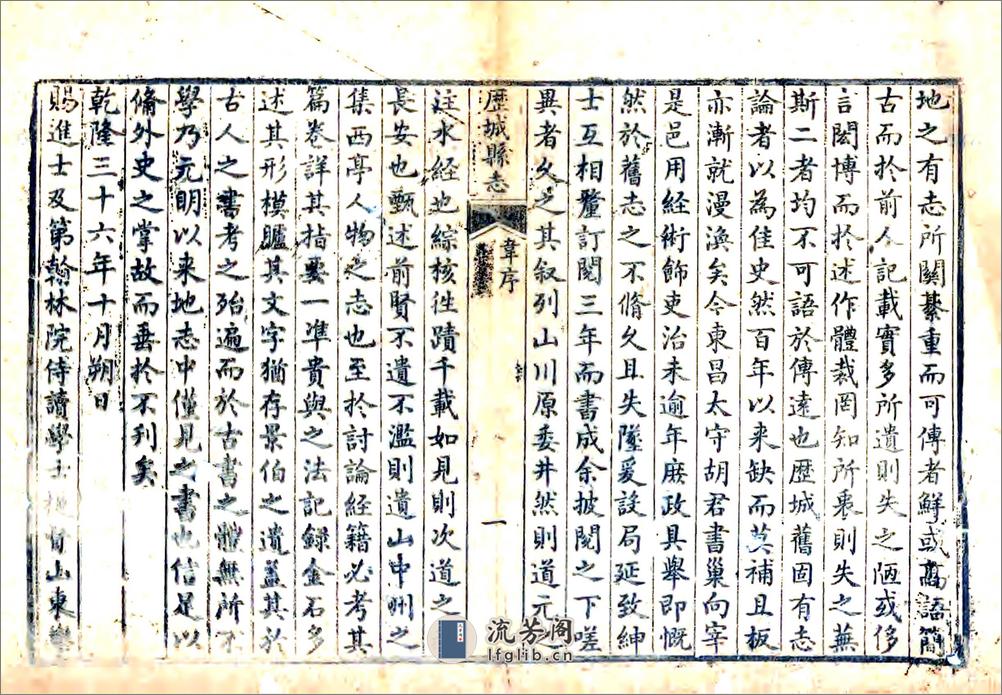 地之有志所關綦重而可傳者鮮或高語簡
古而於前人記載實多所遺則失之陋或侈
言閎博而於述作體裁罔知所衷則失之蕪
斯二者均不可語於傳遠也歷城舊固有志
論者以為佳史然百年以來缺而莫補且板
亦漸就漫渙矣今東昌太守胡君書巢向宰
是邑用經術飾吏治未逾年庶政具舉即慨
然於舊志之不脩久且失墜爰設局延致紳
士互相釐訂閱三年而書成余披閱之下嗟
異者久之其叙列山川原委井然則道元之
歷城縣志 韋序 一
注水經也綜核往蹟千載如見則次道之
長安也甄述前賢不遺不濫則遺山中州之
集西亭人物之志也至於討論經籍必考其
篇卷詳其指要一準貴與之法記錄金石多
述其形模臚其文字猶存景伯之遺蓋其於
古人之書考之殆遍而於古書之體無所不
學乃元明以來地志中僅見之書也信足以
備外史之掌故而垂於不刋矣
乾隆三十六年十月朔日
賜進士及第翰林院侍讀學士提督山東學
流芳阁
lfglib.cn